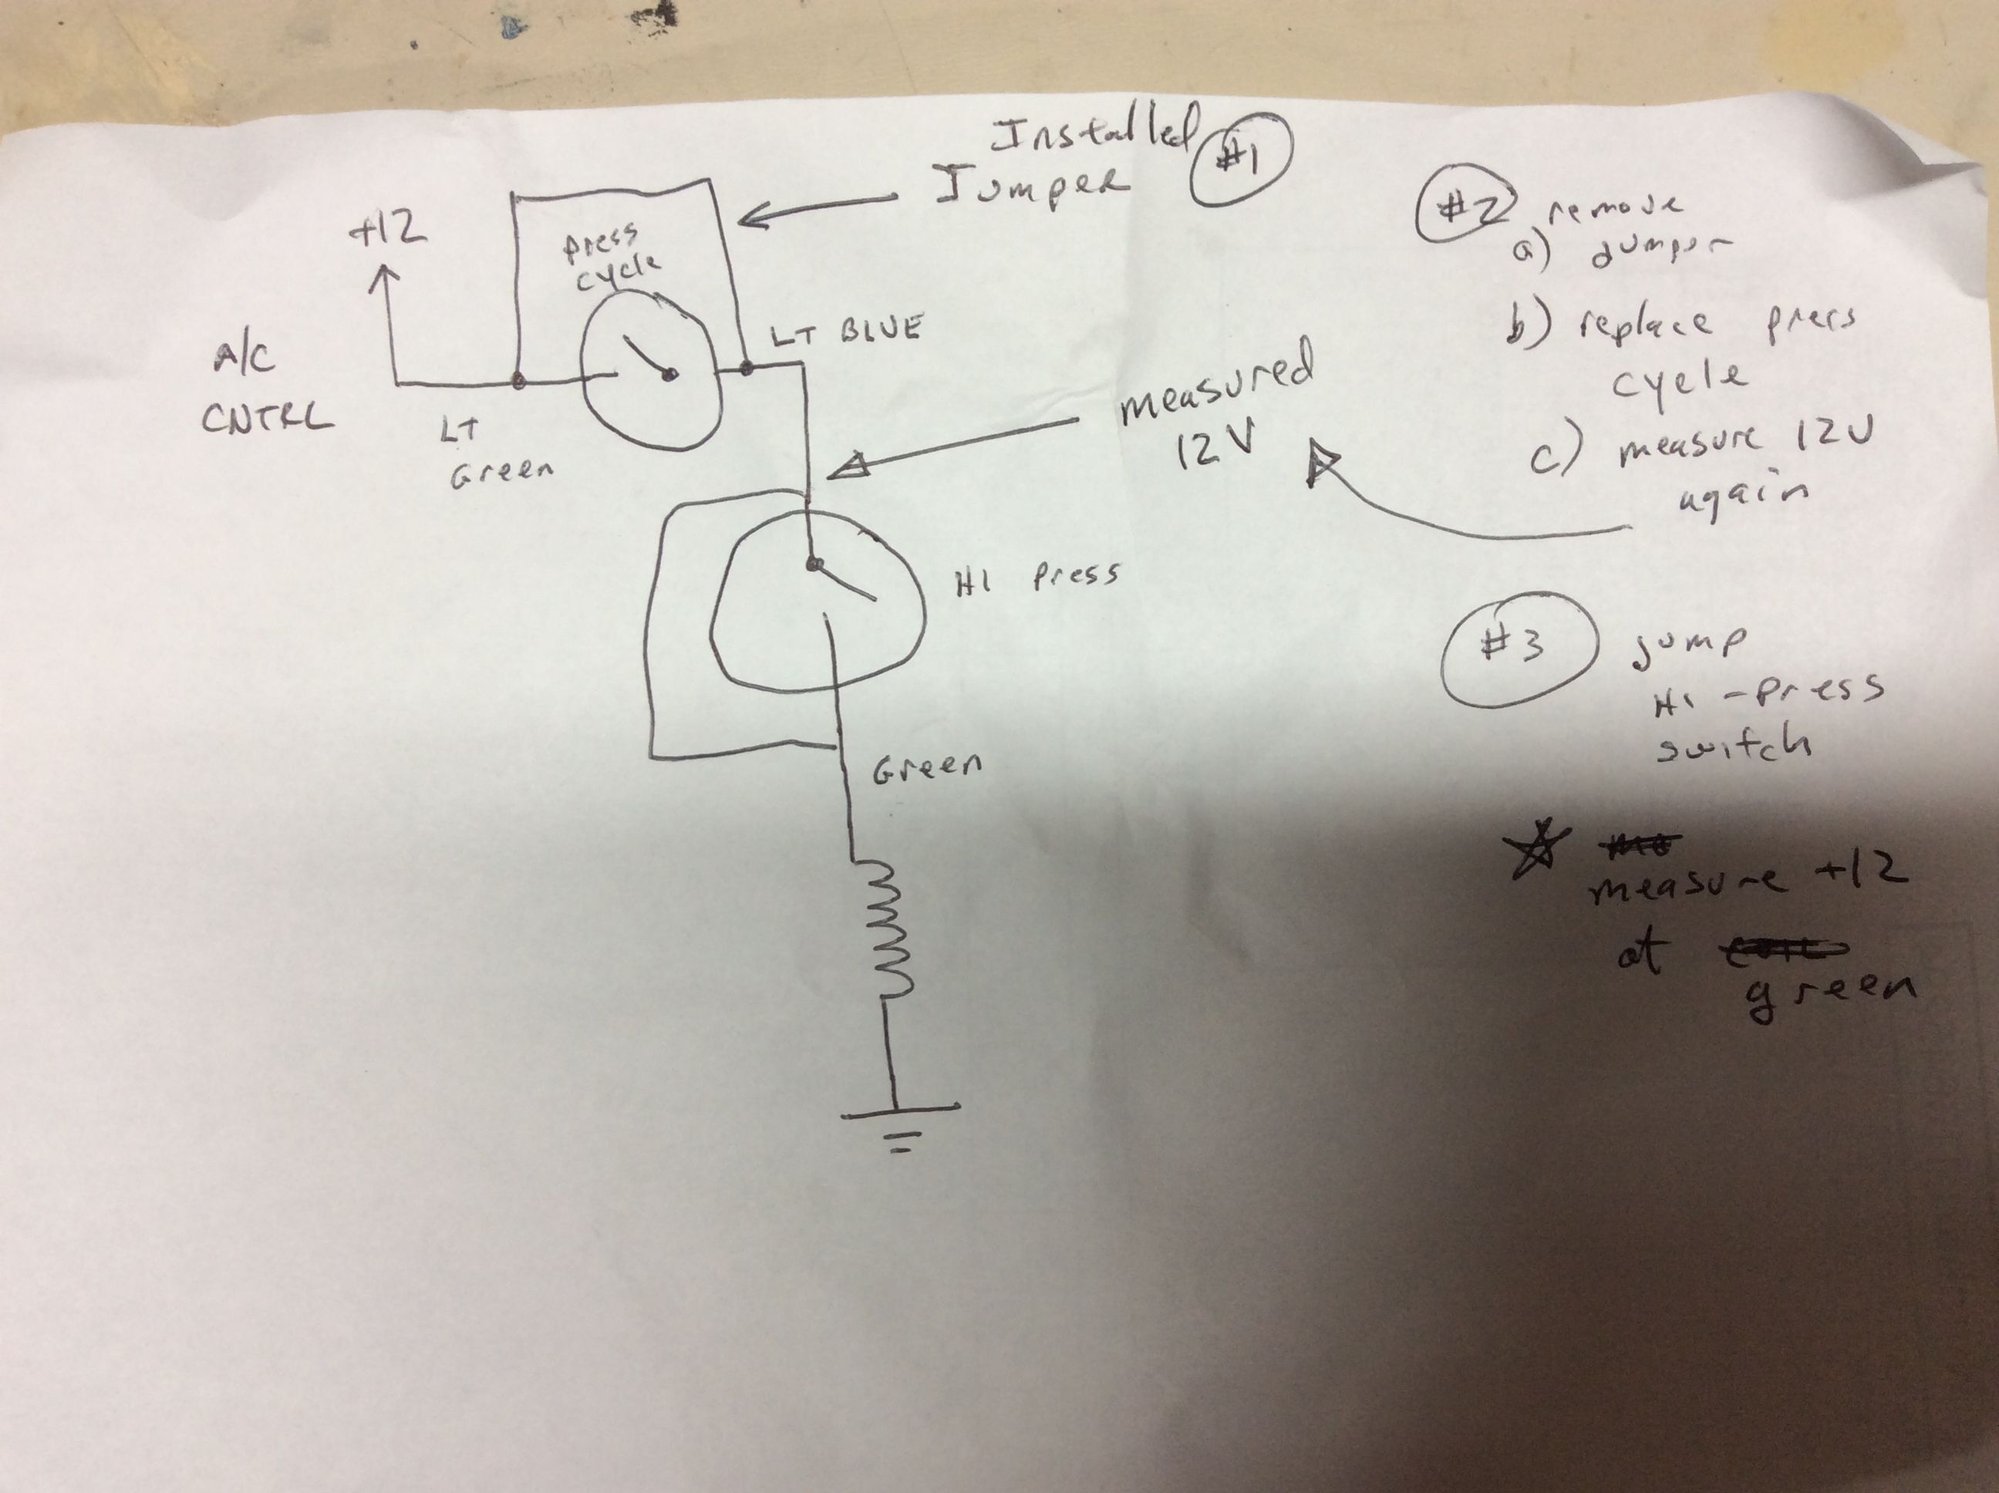 Installed #1
Jumper
+12
press
cycle
LT BLUE
A/C
CNTRL
LT
Green
measured
12V
HI Press
Green
#2 remove
a) Jumper
b) replace press
cycle
c) measure 12V
again
#3 jump
HI-Press
switch
measure +12
at
green